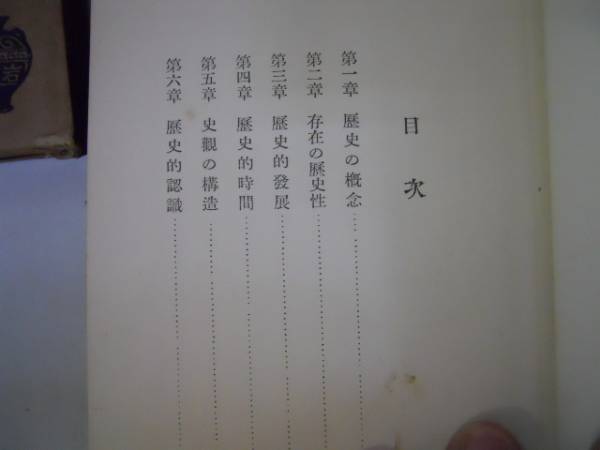 目次
第一章 歷史の概念
第二章 存在の歷史性
第三章 歷史的發展
第四章 歷史的時間
第五章 史觀の構造
第六章 歷史的認識
岩